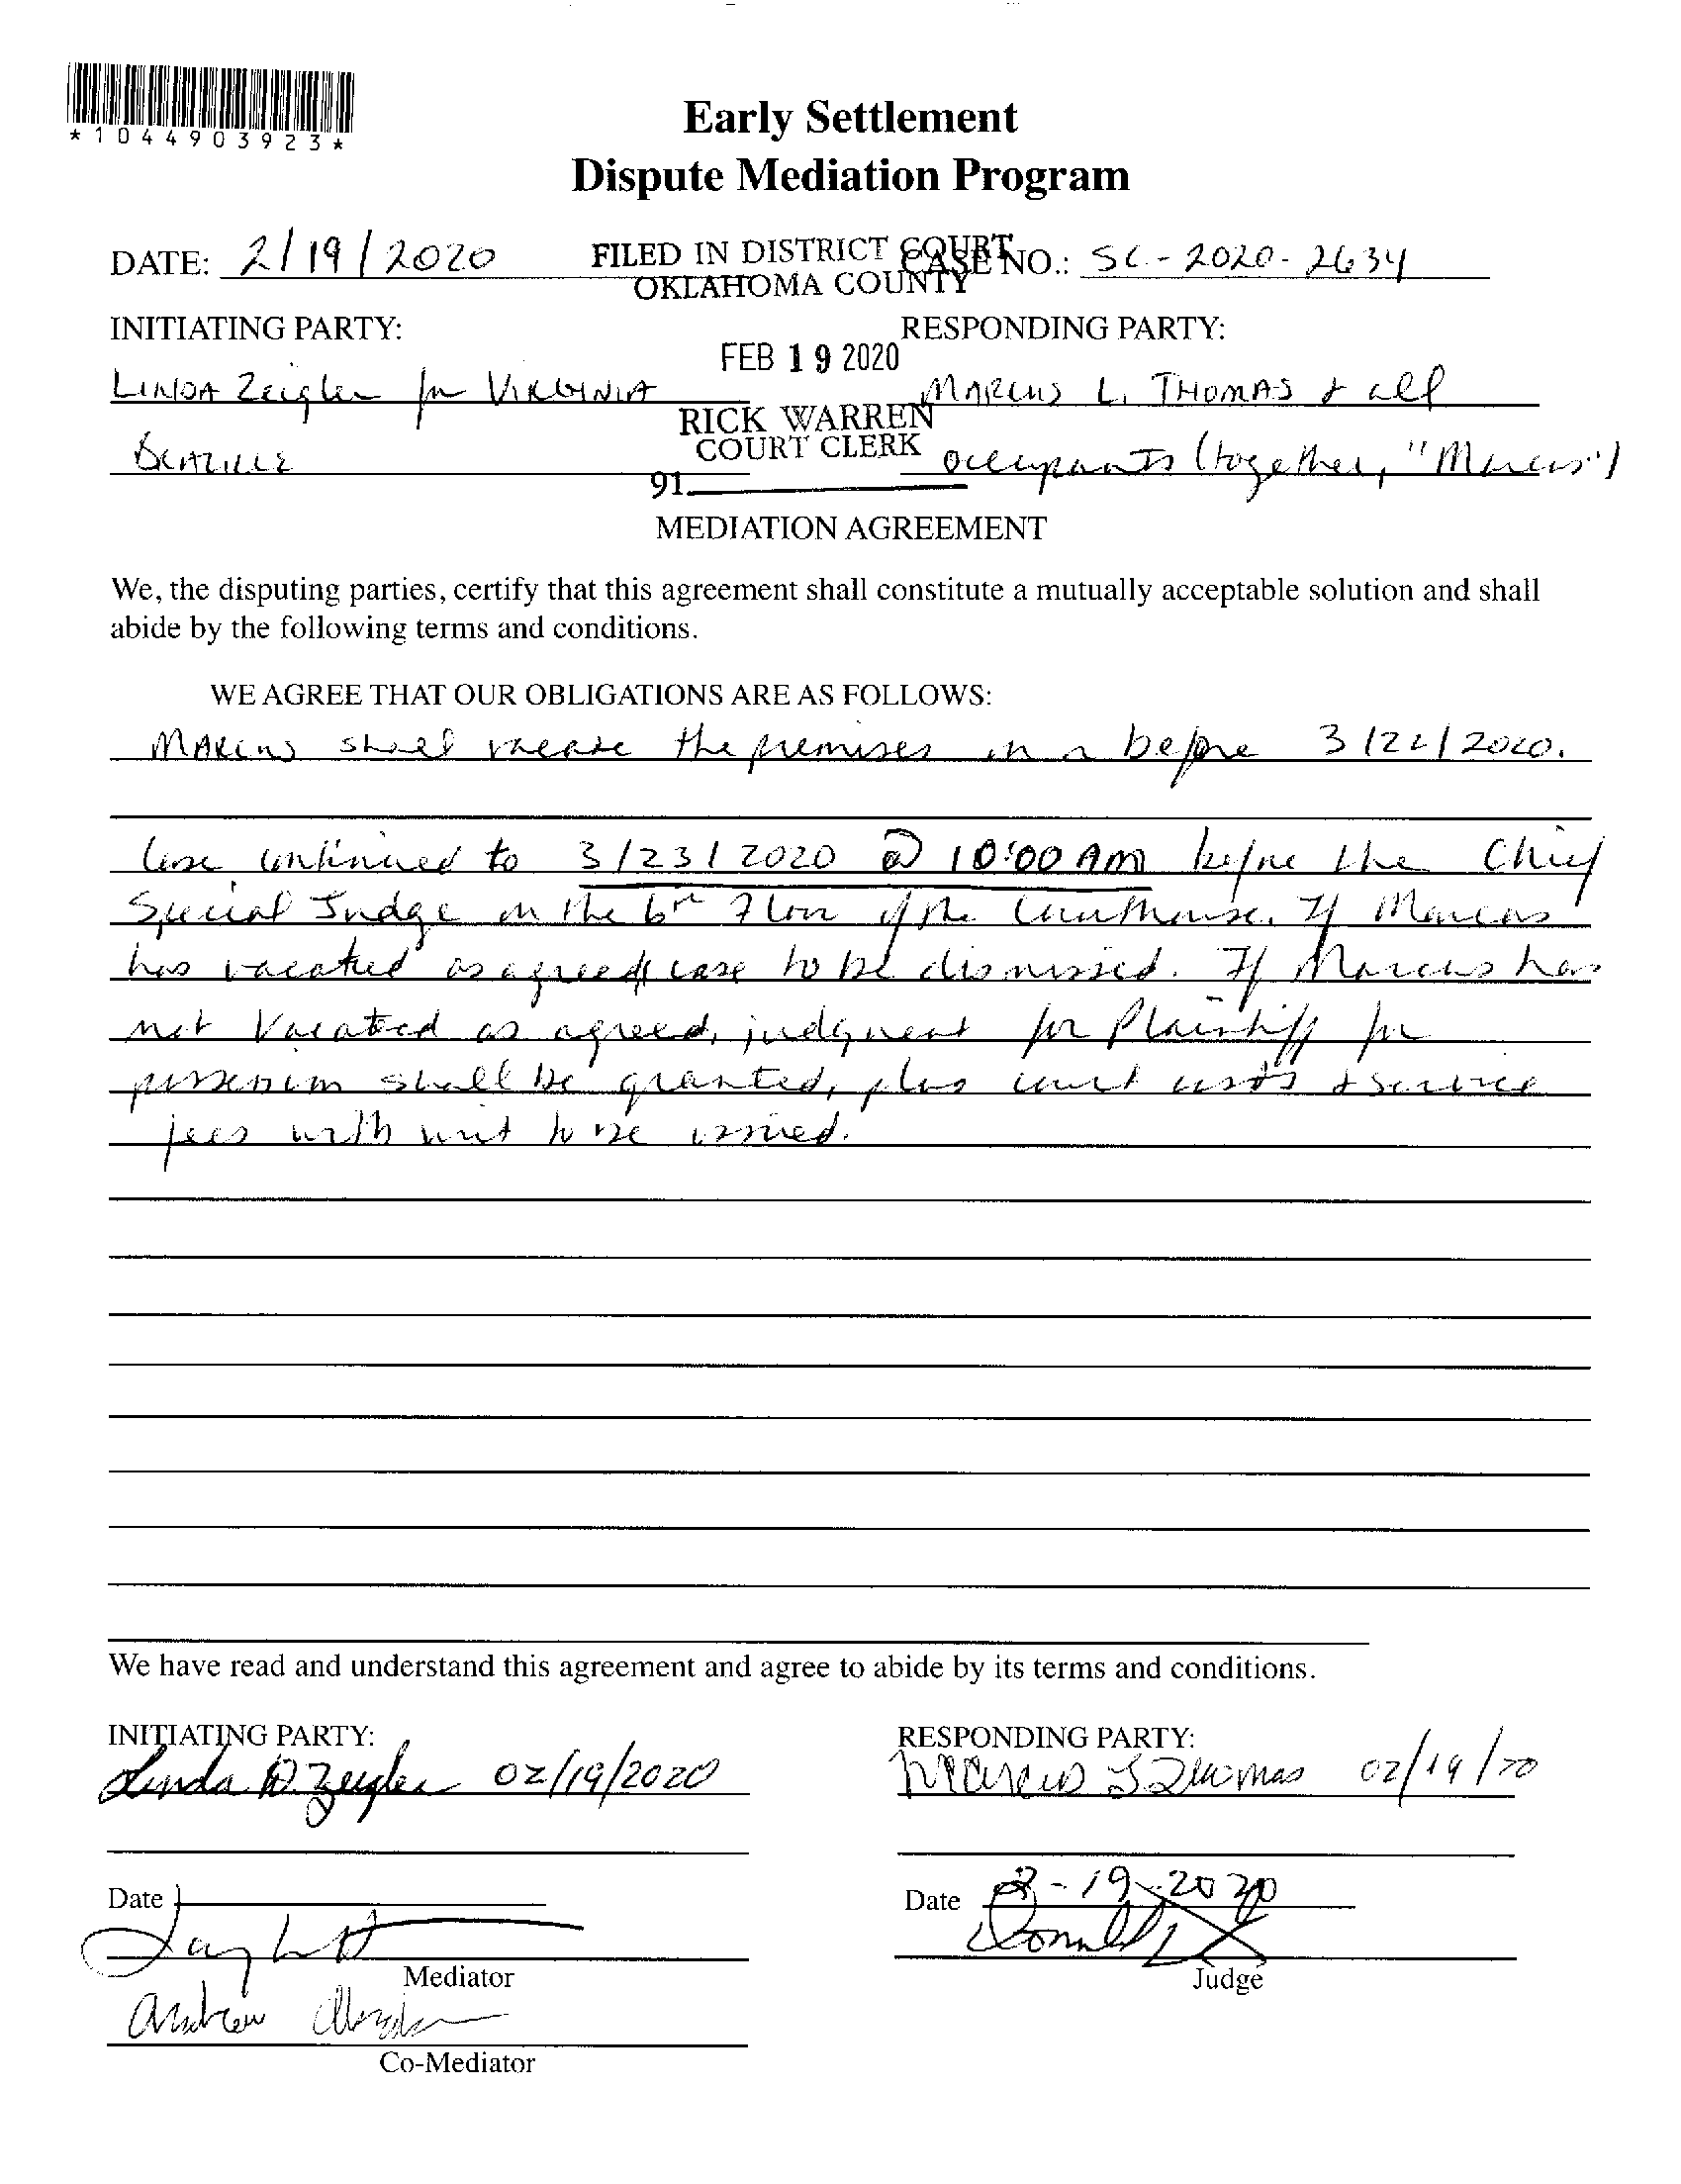 *1044903923*
Early Settlement
Dispute Mediation Program
DATE: 2/19/2020 FILED IN DISTRICT COURT CASE NO.: SC-2020-2634
OKLAHOMA COUNTY
INITIATING PARTY: RESPONDING PARTY:
FEB 19 2020
LINDA Zeigler for VIRGINIA MARCUS L. THOMAS & all
RICK WARREN
COURT CLERK
occupants (together, "Marcus")
91
MEDIATION AGREEMENT
We, the disputing parties, certify that this agreement shall constitute a mutually acceptable solution and shall
abide by the following terms and conditions.
WE AGREE THAT OUR OBLIGATIONS ARE AS FOLLOWS:
Marcus shall vacate the premises on or before 3/22/2020.
Case continued to 3/23/2020 @ 10:00 AM before the Chief
Special Judge on the 6th Floor of the Courthouse. If Marcus
has vacated as agreed, case to be dismissed. If Marcus has
not vacated as agreed, judgment for Plaintiff for
possession shall be granted, plus court costs & service
fees with writ to be issued.
We have read and understand this agreement and agree to abide by its terms and conditions.
INITIATING PARTY: RESPONDING PARTY:
Linda D. Zeigler 02/19/2020 Marcus L Thomas 02/19/20
Date Date 2-19-2020
Donald
Mediator Judge
Andrew
Co-Mediator